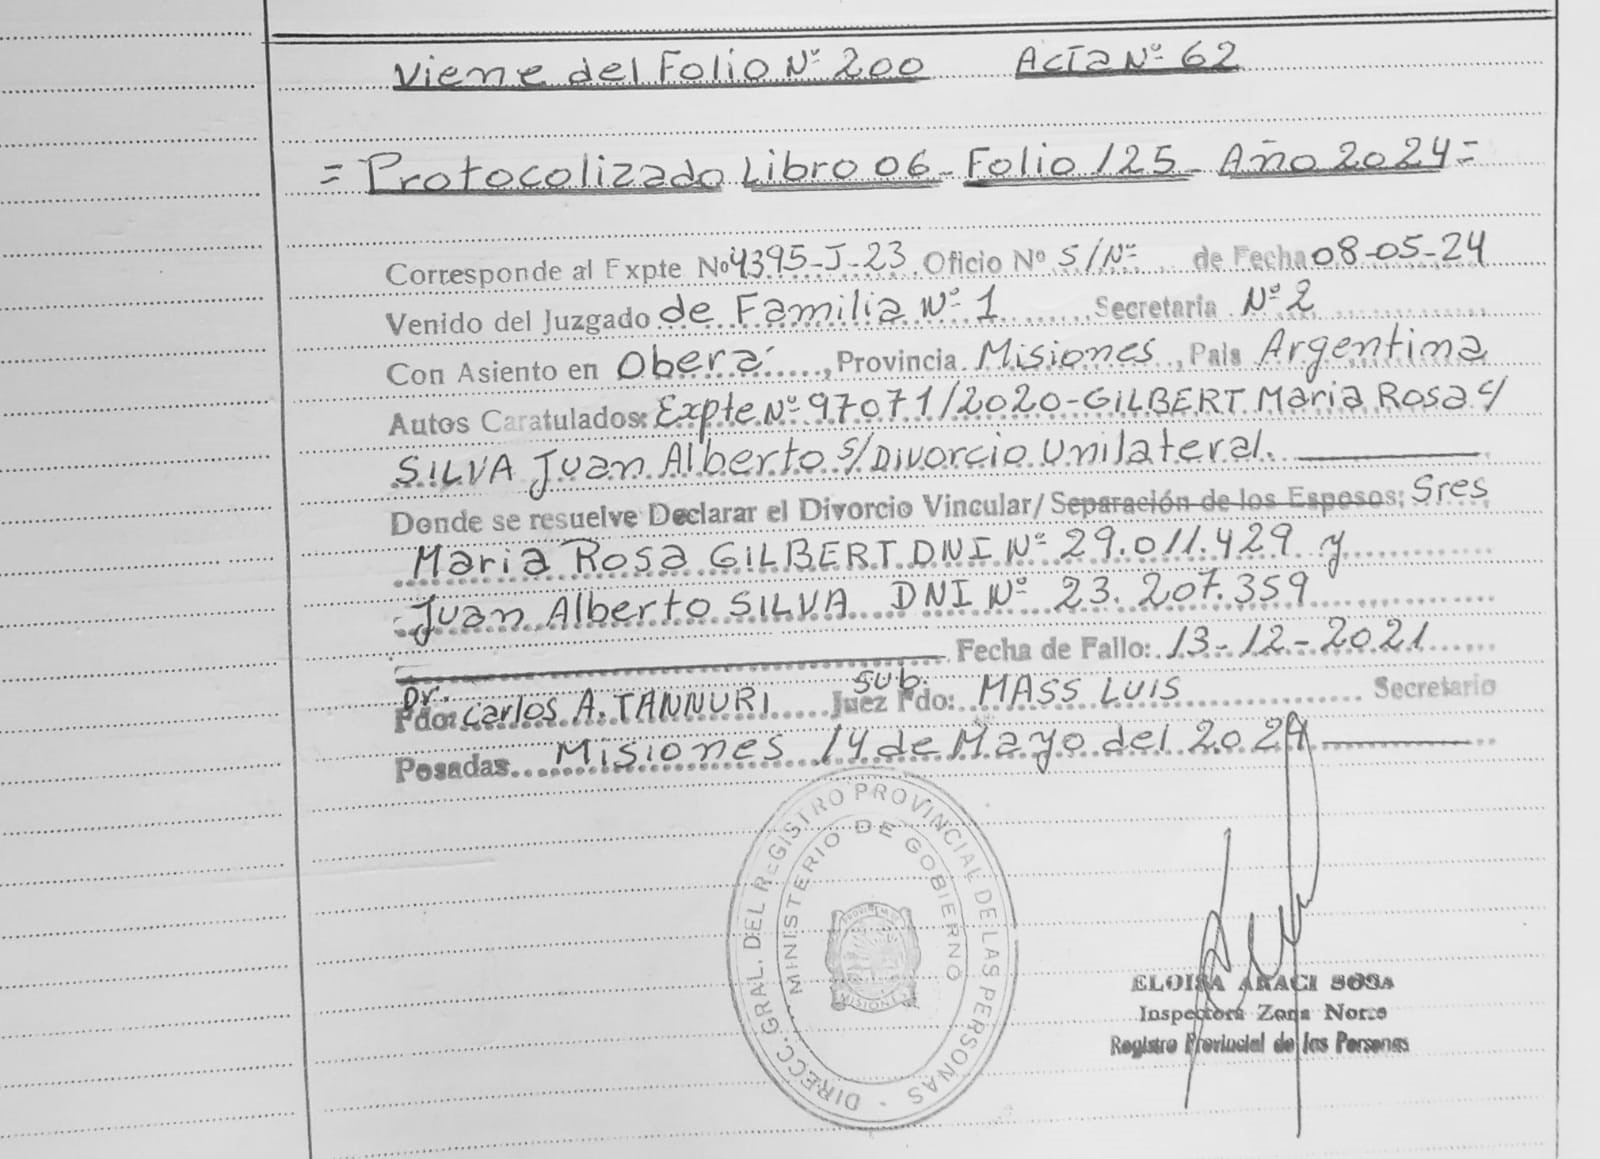 Viene del Folio Nº 200 Acta Nº 62
= Protocolizado Libro 06 - Folio 125 - Año 2024 =
Corresponde al Expte Nº 4395-J-23. Oficio Nº S/Nº de Fecha 08-05-24
Venido del Juzgado de Familia Nº 1 Secretaria Nº 2
Con Asiento en Oberá, Provincia Misiones, Pais Argentina
Autos Caratulados: Expte Nº 97071/2020-GILBERT Maria Rosa c/
SILVA Juan Alberto s/Divorcio Unilateral.
Donde se resuelve Declarar el Divorcio Vincular/ Separación de los Esposos; Sres
Maria Rosa GILBERT DNI Nº 29.011.429 y
Juan Alberto SILVA DNI Nº 23.207.359
Fecha de Fallo: 13-12-2021
Fdo: Dr. Carlos A. TANNURI Juez Fdo: MASS LUIS Sub. Secretario
Posadas Misiones 14 de Mayo del 2024
DIRECC. GRAL. DEL REGISTRO PROVINCIAL DE LAS PERSONAS -
MINISTERIO DE GOBIERNO
PROVINCIA DE
MISIONES
ELOISA ARACI SOSA
Inspectora Zona Norte
Registro Provincial de las Personas